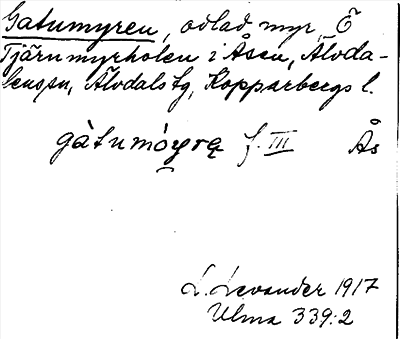 Gatumyren, odlad myr, Ö
Tjärnmyrholen i Åsen, Älvda-
lens sn, Älvdals tg, Kopparbergs l.
gàtumóyrę f. III Ås
L. Levander 1917
Ulma 339:2